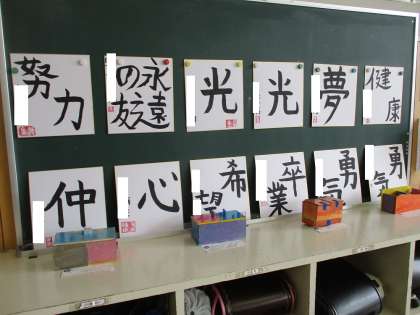 努力
永遠
の友
光
光
夢
健康
仲
心
希望
卒業
勇気
勇気